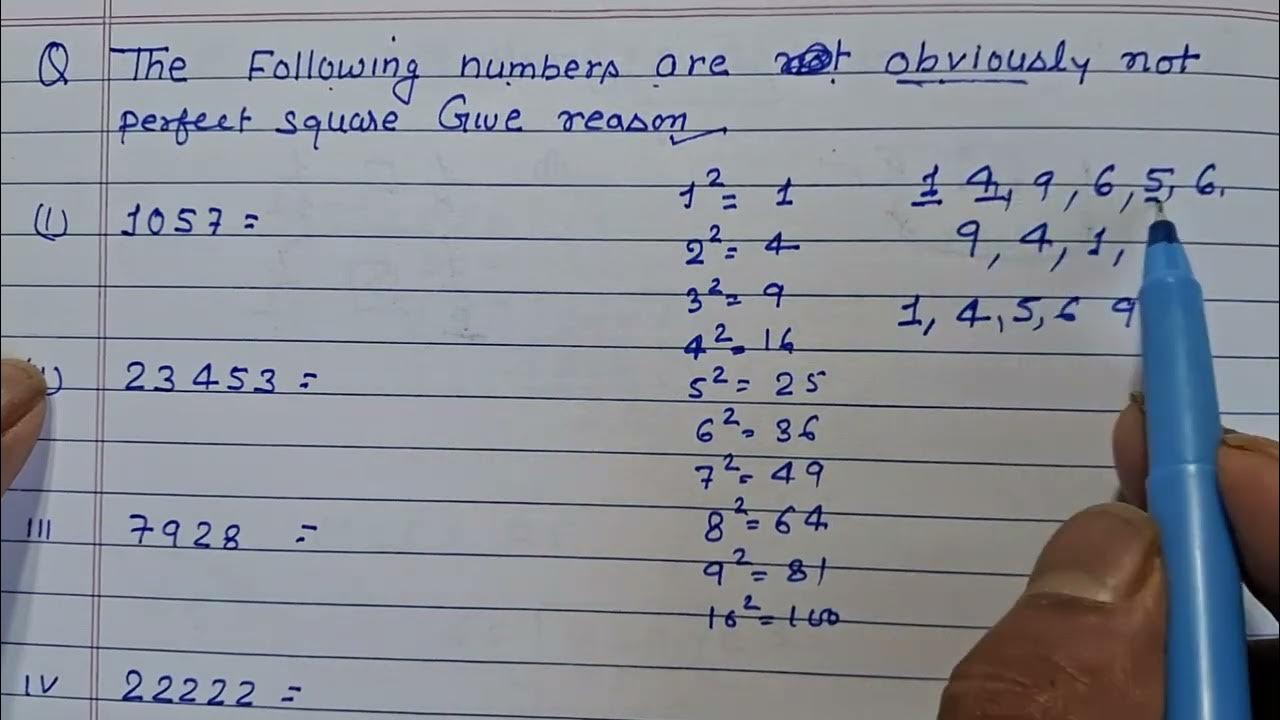 Q The Following numbers are obviously not
perfect square Give reason
(I) 1057 =
23453 =
III 7928 =
IV 22222 =
1² = 1
2² = 4
3² = 9
4² = 16
5² = 25
6² = 36
7² = 49
8² = 64
9² = 81
10² = 100
1 4, 9, 6, 5, 6,
9, 4, 1,
1, 4, 5, 6 9